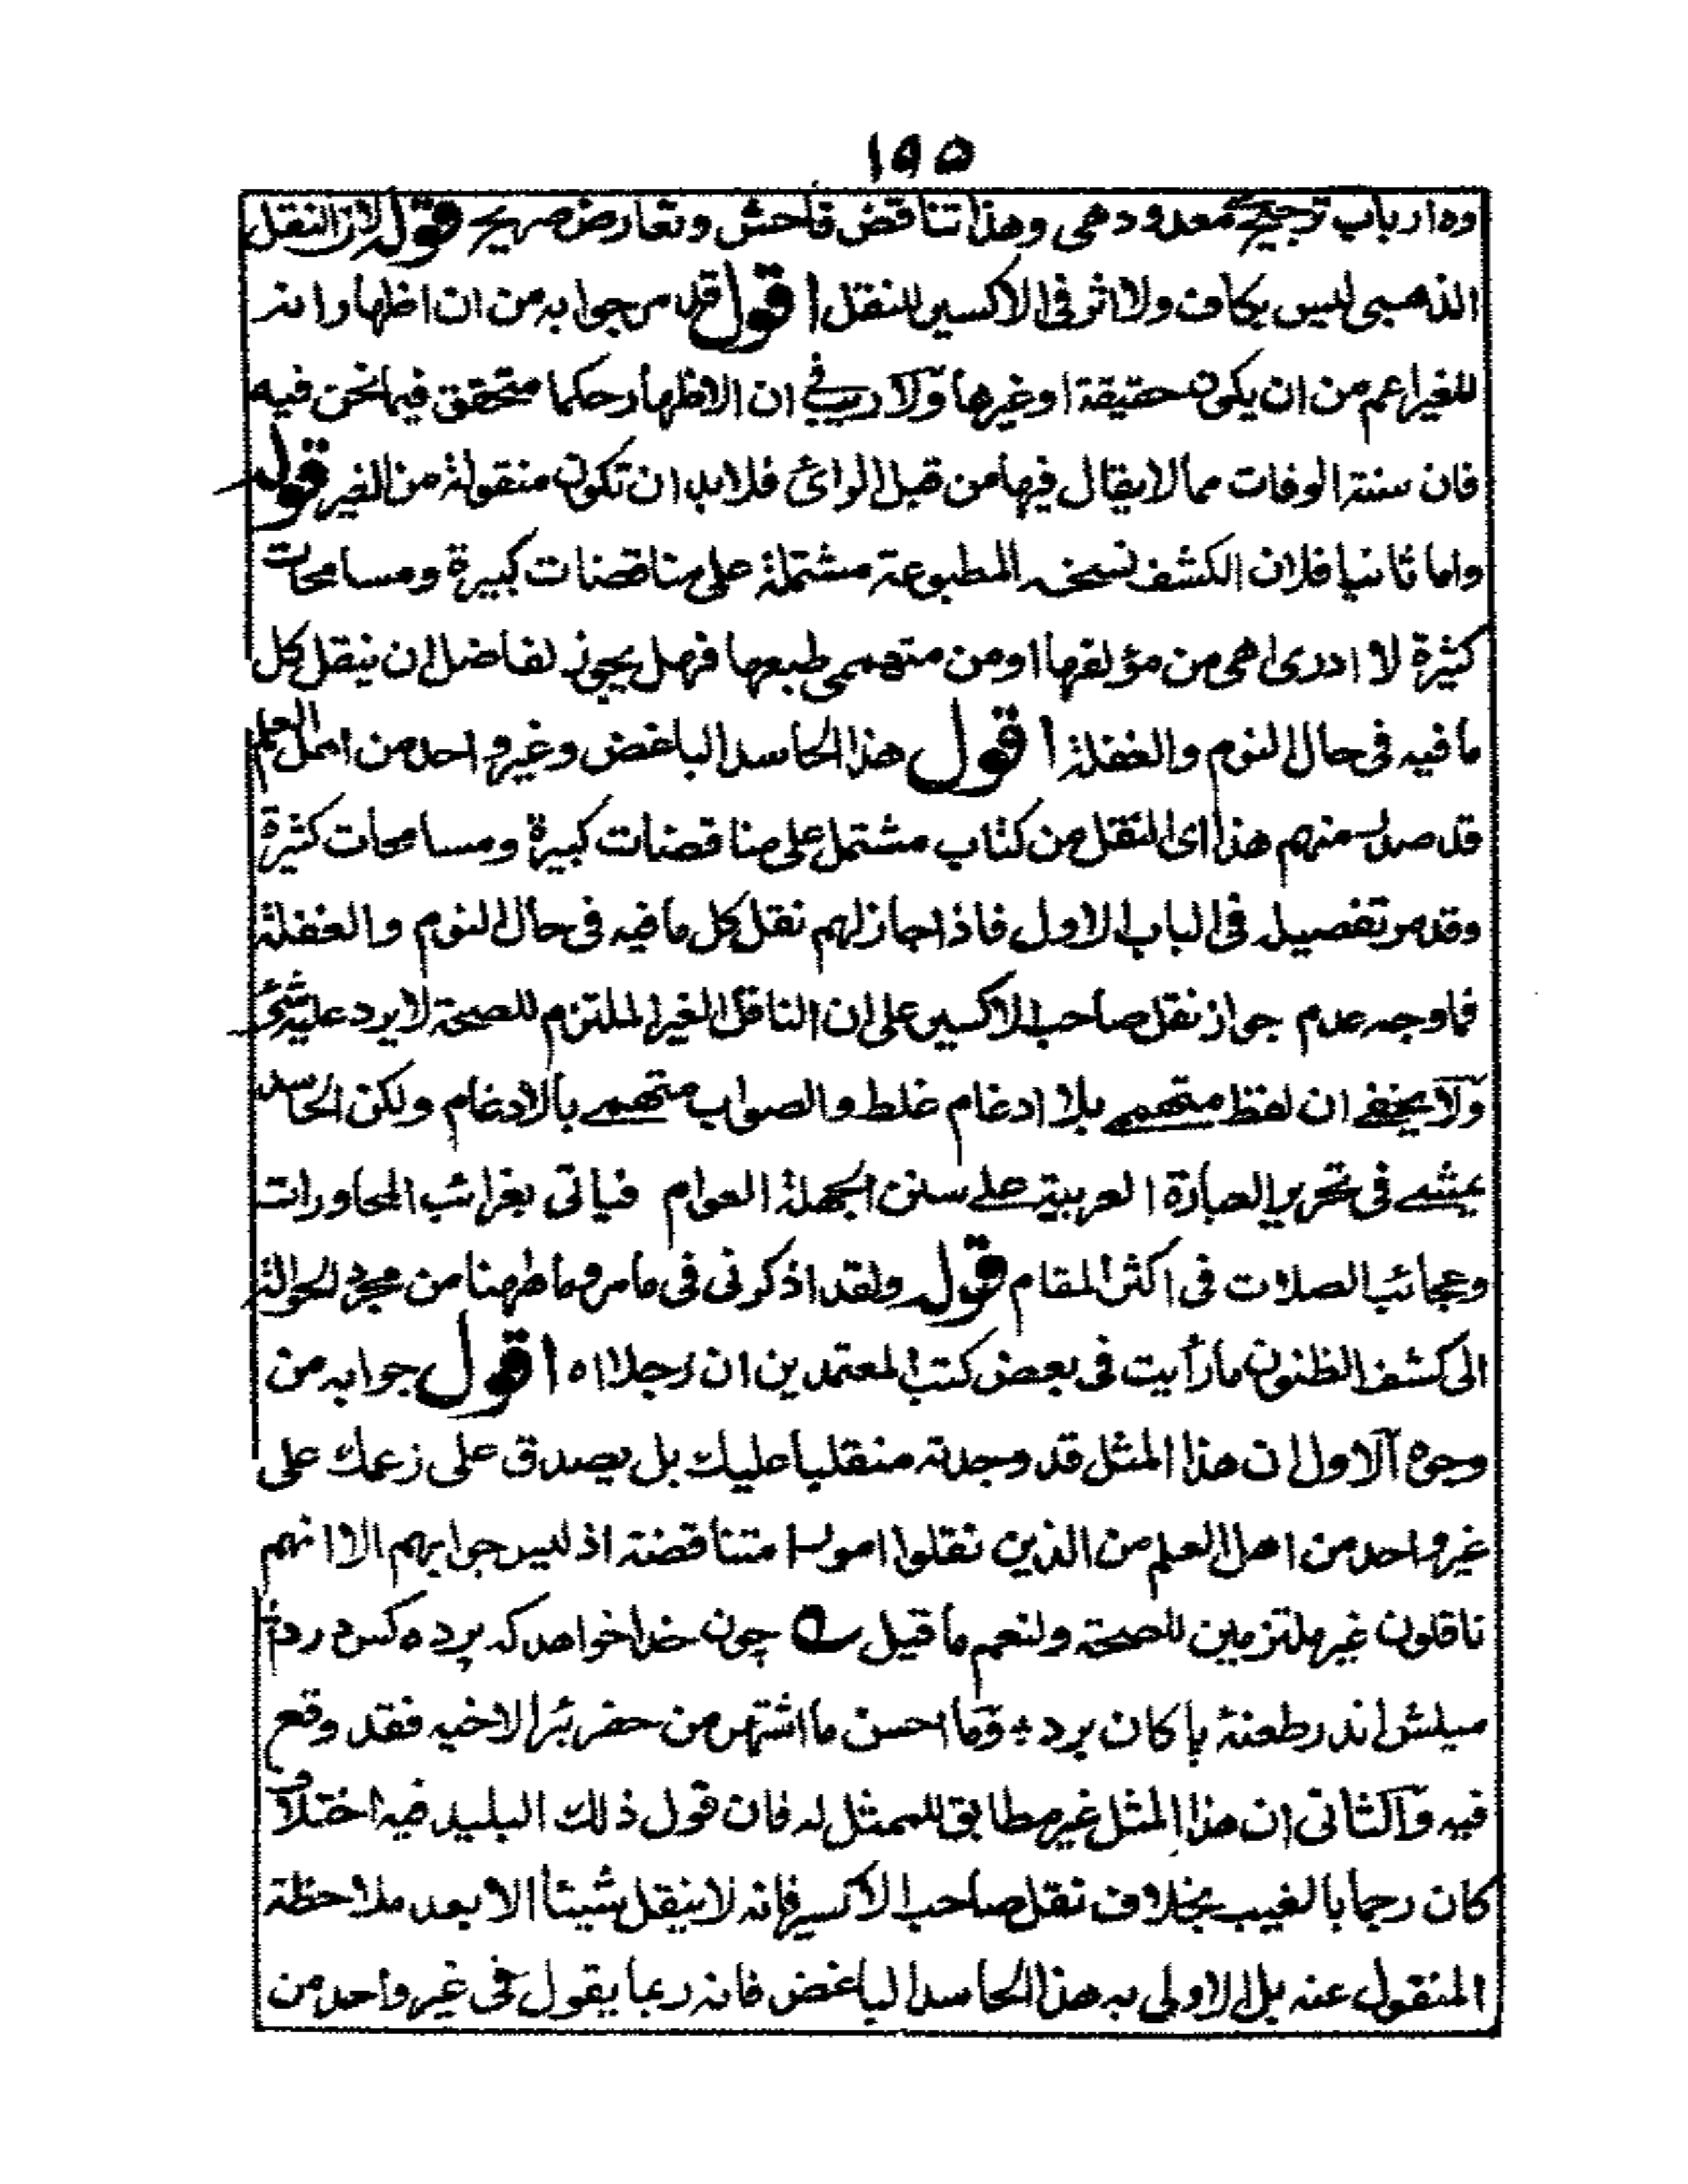 ١٩٥
وہ ارباب ترجیح معدودهمی وهذا تناقض فاحش وتعارض صریح قوله لان النقل
الذهبی لیس بکاف ولا اثر فی الاکسیر للنقل اقول قد مر جوابه من ان اظهارا نه
للغیر اعم من ان یکون حقیقة او غیرها ولا ریب فی ان الاظهار حکما متحقق فیما نحن فیه
فان سنة الوفات مما لا یقال فیها من قبل الرائ فلا بد ان تکون منقولة من الغیر قوله
واما ثانیا فلان الکشف نسخه المطبوعة مشتملة علی مناقضات کبیرة ومسامحات
کثیرة لا ادری اهی من مؤلفها او من متهممی طبعها فهل یجوز لفاضل ان ینقل کل
ما فیه فی حال النوم والغفلة اقول هذا الحاسد الباغض وغیر واحد من اهل العلم
قد صدر منهم هذا ای النقل من کتاب مشتمل علی مناقضات کبیرة ومسامحات کثیرة
وقد مر تفصیله فی الباب الاول فاذا جاز لهم نقل کل ما فیه فی حال النوم والغفلة
فما وجه عدم جواز نقل صاحب الاکسیر علی ان الناقل الغیر الملتزم للصحة لا یرد علیه شئ
ولا یخفی ان لفظ متهممی بلا ادغام غلط والصواب متهمی بالادغام ولکن الحاسد
یمشی فی تحریر العبارة العربیة علی سنن الجهلة العوام فیاتی بغرائب المحاورات
وعجائب الصلات فی اکثر المقام قوله ولقد اذکرنی فی ما مر وما ههنا من مجرد الحوالة
الی کشف الظنون ما رأیت فی بعض کتب المعتمدین ان رجلا اه اقول جوابه من
وجوه الاول ان هذا المثل قد وجدته منقلبا علیك بل یصدق علی زعمك علی
غیر واحد من اهل العلم من الذین نقلوا امورا متناقضة اذ لیس جوابهم الا انهم
ناقلون غیر ملتزمین للصحة ولنعم ما قیل ے چون خدا خواهد که پرده کس درد ؞
میلش اندر طعنۀ پاکان برد ؞ وما احسن ما اشتهر من حفر بئرا لاخیه فقد وقع
فیه والثانی ان هذا المثل غیر مطابق للممثل له فان قول ذلك البلید فیه اختلاف
کان رجما بالغیب بخلاف نقل صاحب الاکسیر فانه لا ینقل شیئا الا بعد ملاحظة
المنقول عنه بل الاولی به هذا الحاسد الباغض فانه ربما یقول فی غیر واحد من